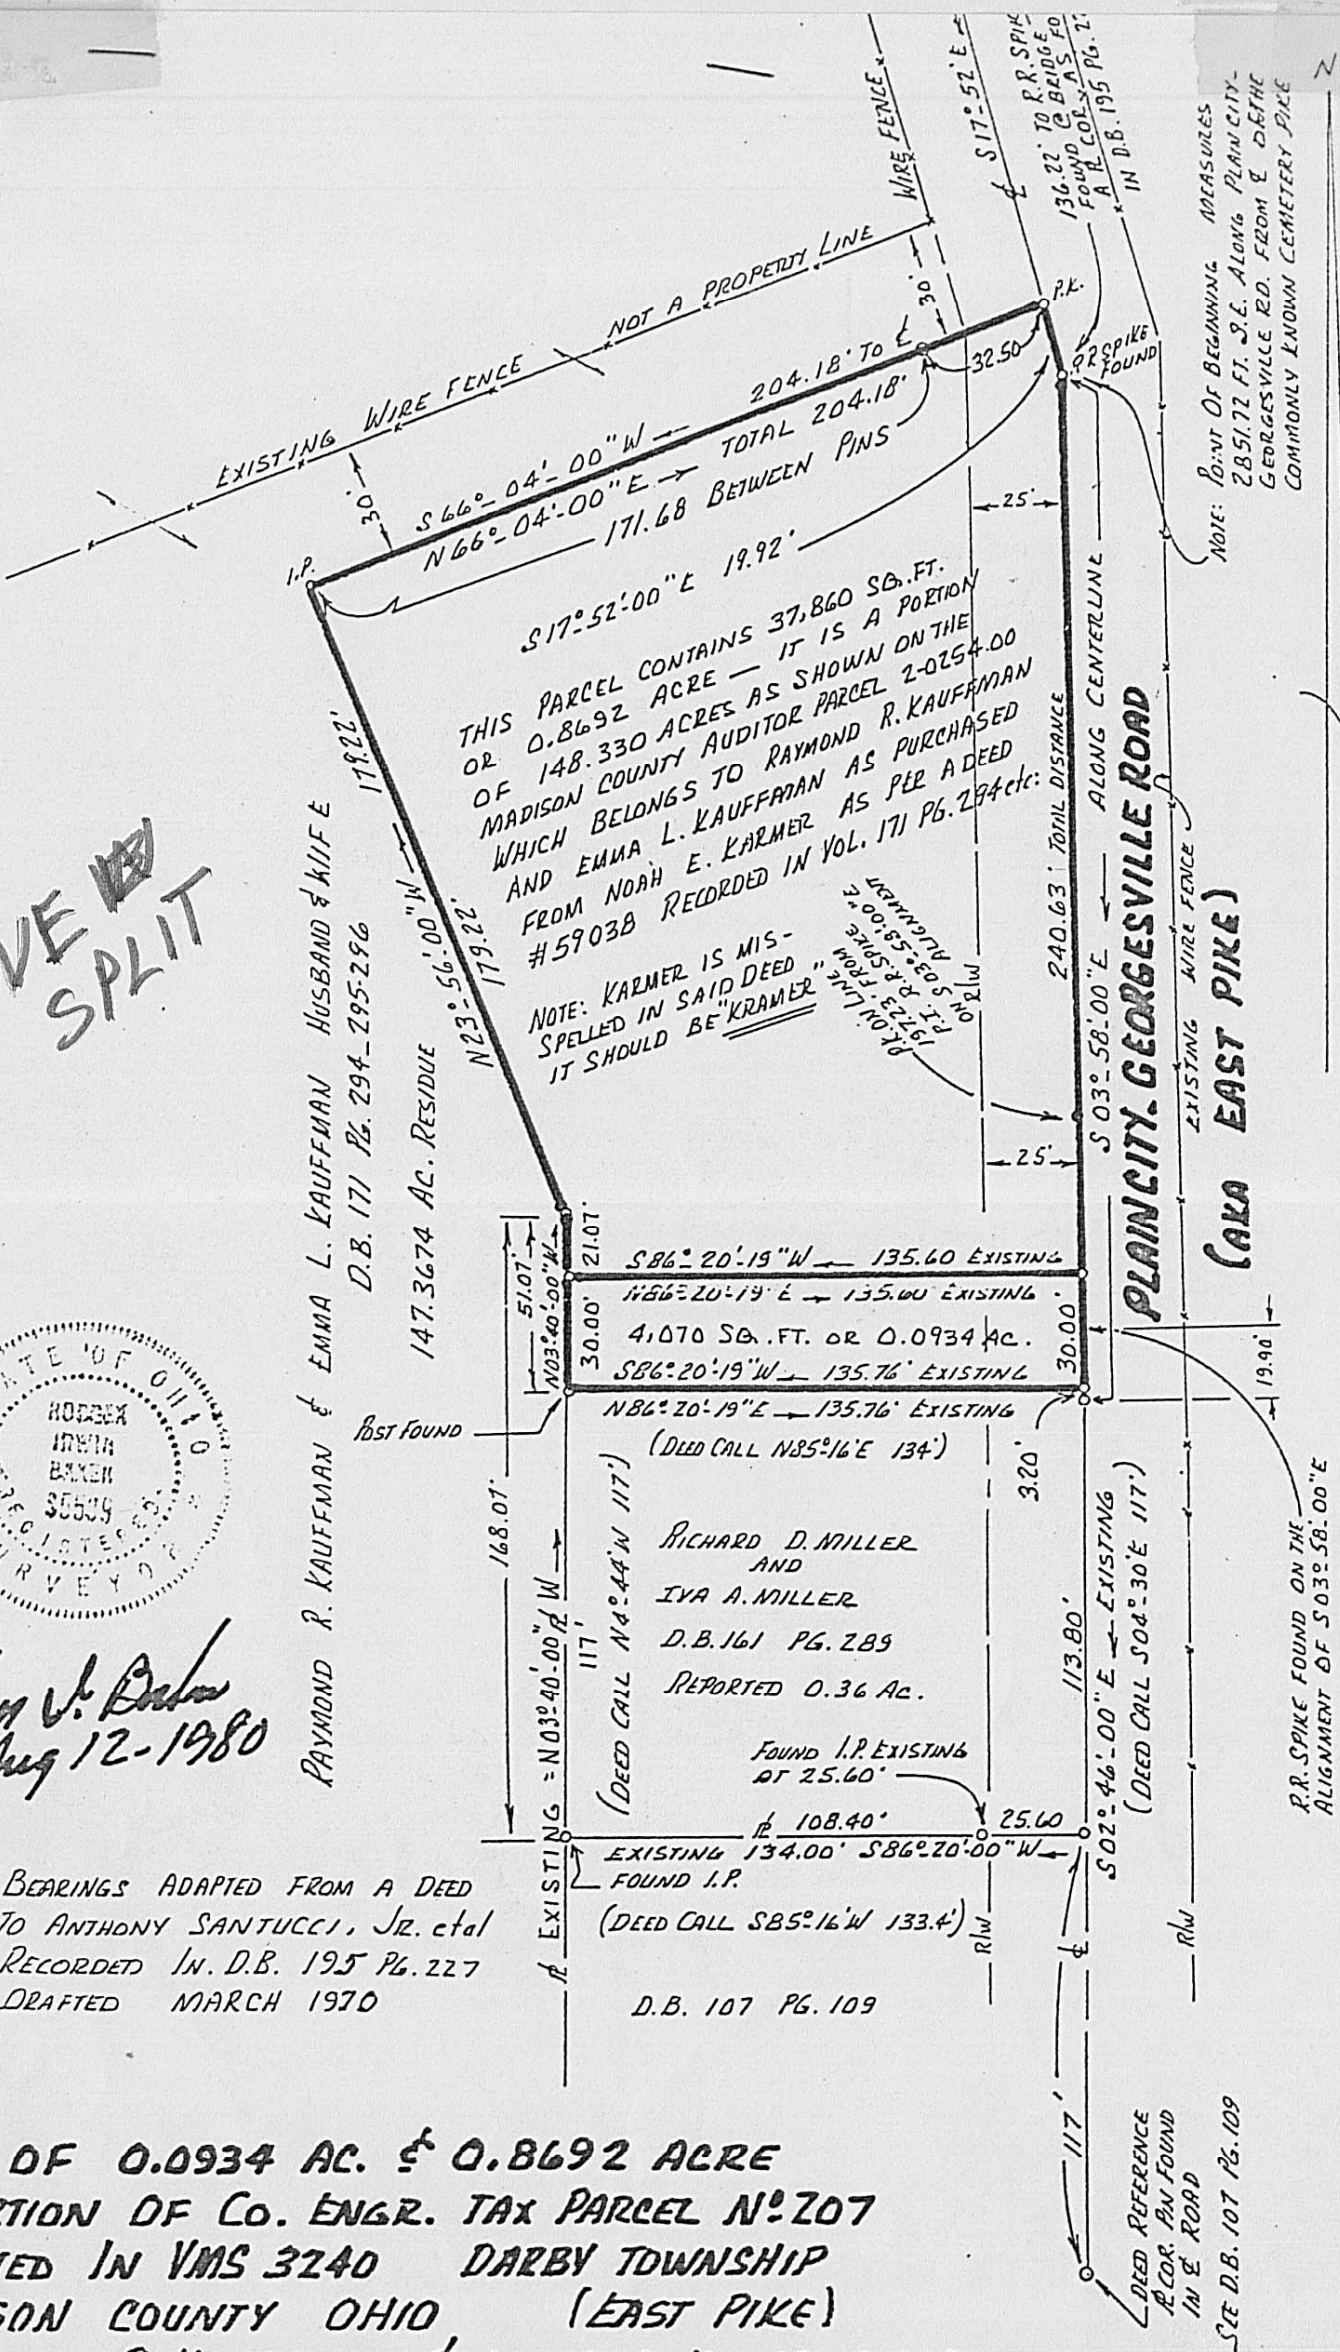 WIRE FENCE
⅊ S17°-52'E
136.22' TO R.R. SPIK
FOUND @ BRIDGE
IN D.B. 195 PG. 22
NOTE: POINT OF BEGINNING MEASURES
2851.72 FT. S.E. ALONG PLAIN CITY-
GEORGESVILLE RD. FROM ℄ OF THE
COMMONLY KNOWN CEMETERY PIKE
EXISTING WIRE FENCE NOT A PROPERTY LINE
30'
30'
P.K.
R.R. SPIKE
FOUND
204.18' TO ℄
32.50'
S66°-04'-00"W
N66°-04'-00"E TOTAL 204.18'
171.68 BETWEEN PINS
I.P.
S17°-52'-00"E 19.92'
25'
THIS PARCEL CONTAINS 37,860 SQ.FT.
OR 0.8692 ACRE — IT IS A PORTION
OF 148.330 ACRES AS SHOWN ON THE
MADISON COUNTY AUDITOR PARCEL 2-0254.00
WHICH BELONGS TO RAYMOND R. KAUFFMAN
AND EMMA L. KAUFFMAN AS PURCHASED
FROM NOAH E. KARMER AS PER A DEED
#59038 RECORDED IN VOL. 171 PG. 294 etc.
NOTE: KARMER IS MIS-
SPELLED IN SAID DEED
IT SHOULD BE "KRAMER"
P.K. ON LINE
197.23' FROM
P.I. R.R. SPIKE
ON S03°-58'-00"E
ALIGNMENT
R/W
25'
179.22'
N23°-56'-00"W
179.22'
240.63' TOTAL DISTANCE
S03°-58'-00"E ALONG CENTERLINE
PLAIN CITY-GEORGESVILLE ROAD
EXISTING WIRE FENCE
(AKA EAST PIKE)
SPLIT
RAYMOND R. KAUFFMAN & EMMA L. KAUFFMAN HUSBAND & WIFE
D.B. 171 PG. 294-295-296
147.3674 AC. RESIDUE
21.07'
51.07'
N03°-40'-00"W
30.00'
S86°-20'-19"W 135.60 EXISTING
N86°-20'-19"E 135.60 EXISTING
4,070 SQ.FT. OR 0.0934 AC.
30.00'
S86°-20'-19"W 135.76' EXISTING
N86°-20'-19"E 135.76' EXISTING
(DEED CALL N85°16'E 134')
POST FOUND
19.90'
3.20'
R.R. SPIKE FOUND ON THE
ALIGNMENT OF S03°-58'-00"E
168.07'
⅊ EXISTING = N03°-40'-00"W
117'
(DEED CALL N4°-44'W 117')
RICHARD D. MILLER
AND
IVA A. MILLER
D.B. 161 PG. 289
REPORTED 0.36 AC.
FOUND I.P. EXISTING
AT 25.60'
113.80'
S02°-46'-00"E EXISTING
(DEED CALL S04°-30'E 117')
⅊ 108.40'
25.60
EXISTING 134.00' S86°-20'-00"W
FOUND I.P.
(DEED CALL S85°16'W 133.4')
R/W
R/W
D.B. 107 PG. 109
117'
DEED REFERENCE
⅊ COR. PIN FOUND
IN ℄ ROAD
SEE D.B. 107 PG. 109
OHIO
IRWIN
REGISTERED
SURVEYOR
Aug 12-1980
BEARINGS ADAPTED FROM A DEED
TO ANTHONY SANTUCCI, JR. etal
RECORDED IN. D.B. 195 PG. 227
DRAFTED MARCH 1970
OF 0.0934 AC. & 0.8692 ACRE
TION OF CO. ENGR. TAX PARCEL Nº 207
TED IN VMS 3240 DARBY TOWNSHIP
SON COUNTY OHIO (EAST PIKE)